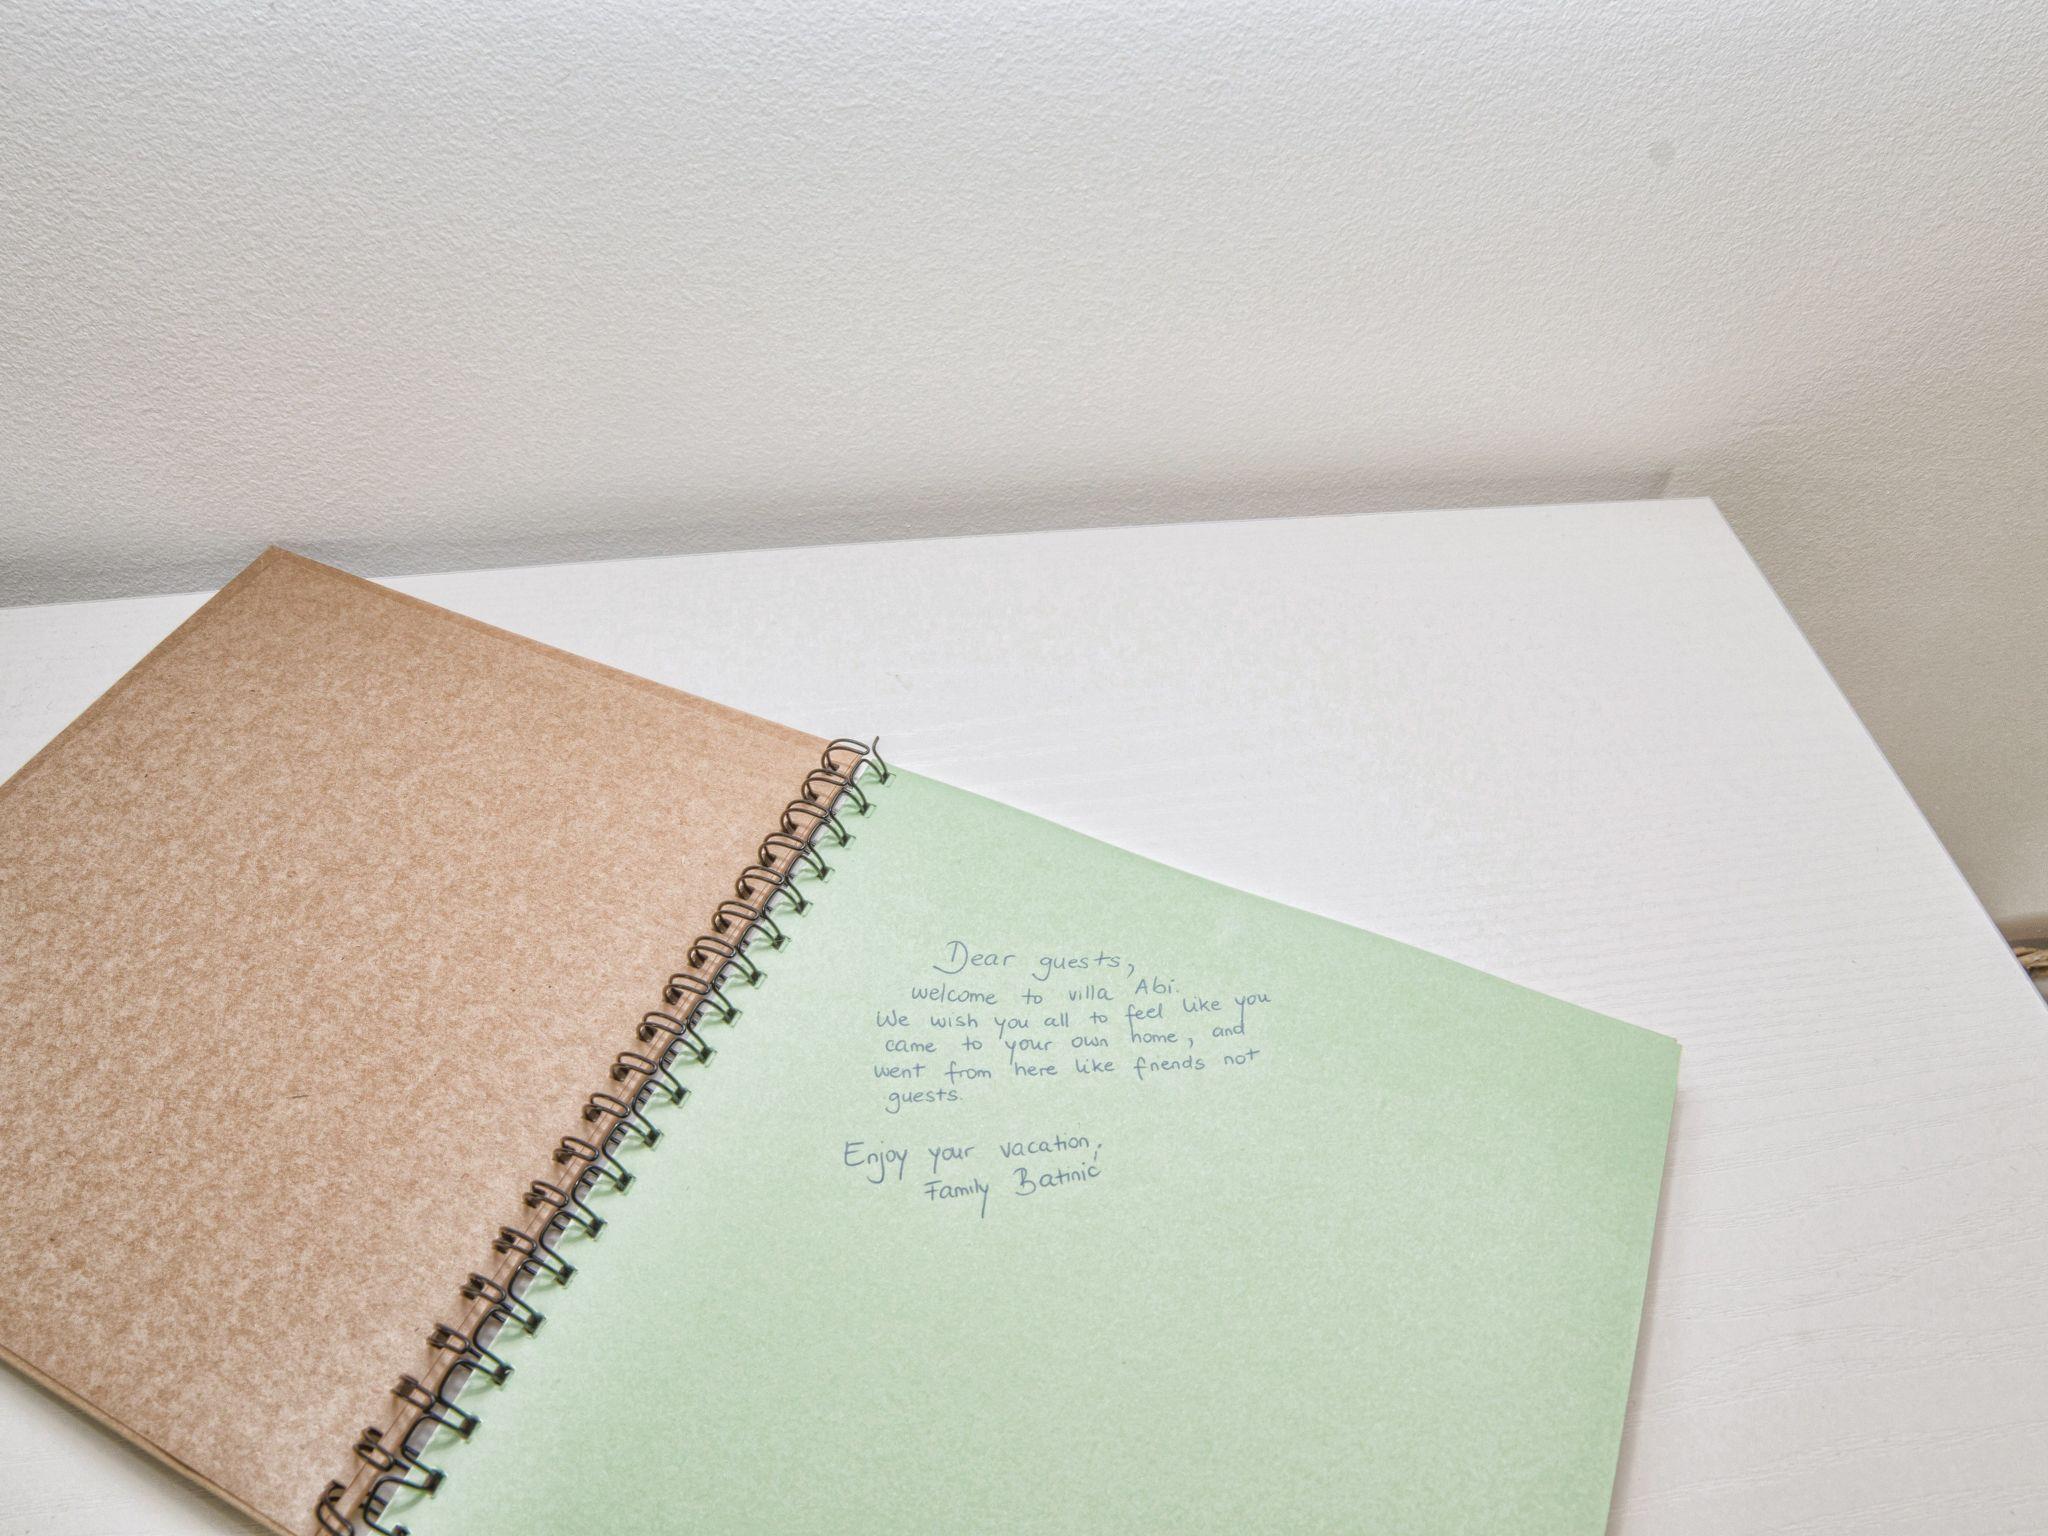 Dear guests,
welcome to villa Abi.
We wish you all to feel like you
came to your own home, and
went from here like friends not
guests.
Enjoy your vacation,
Family Batinić